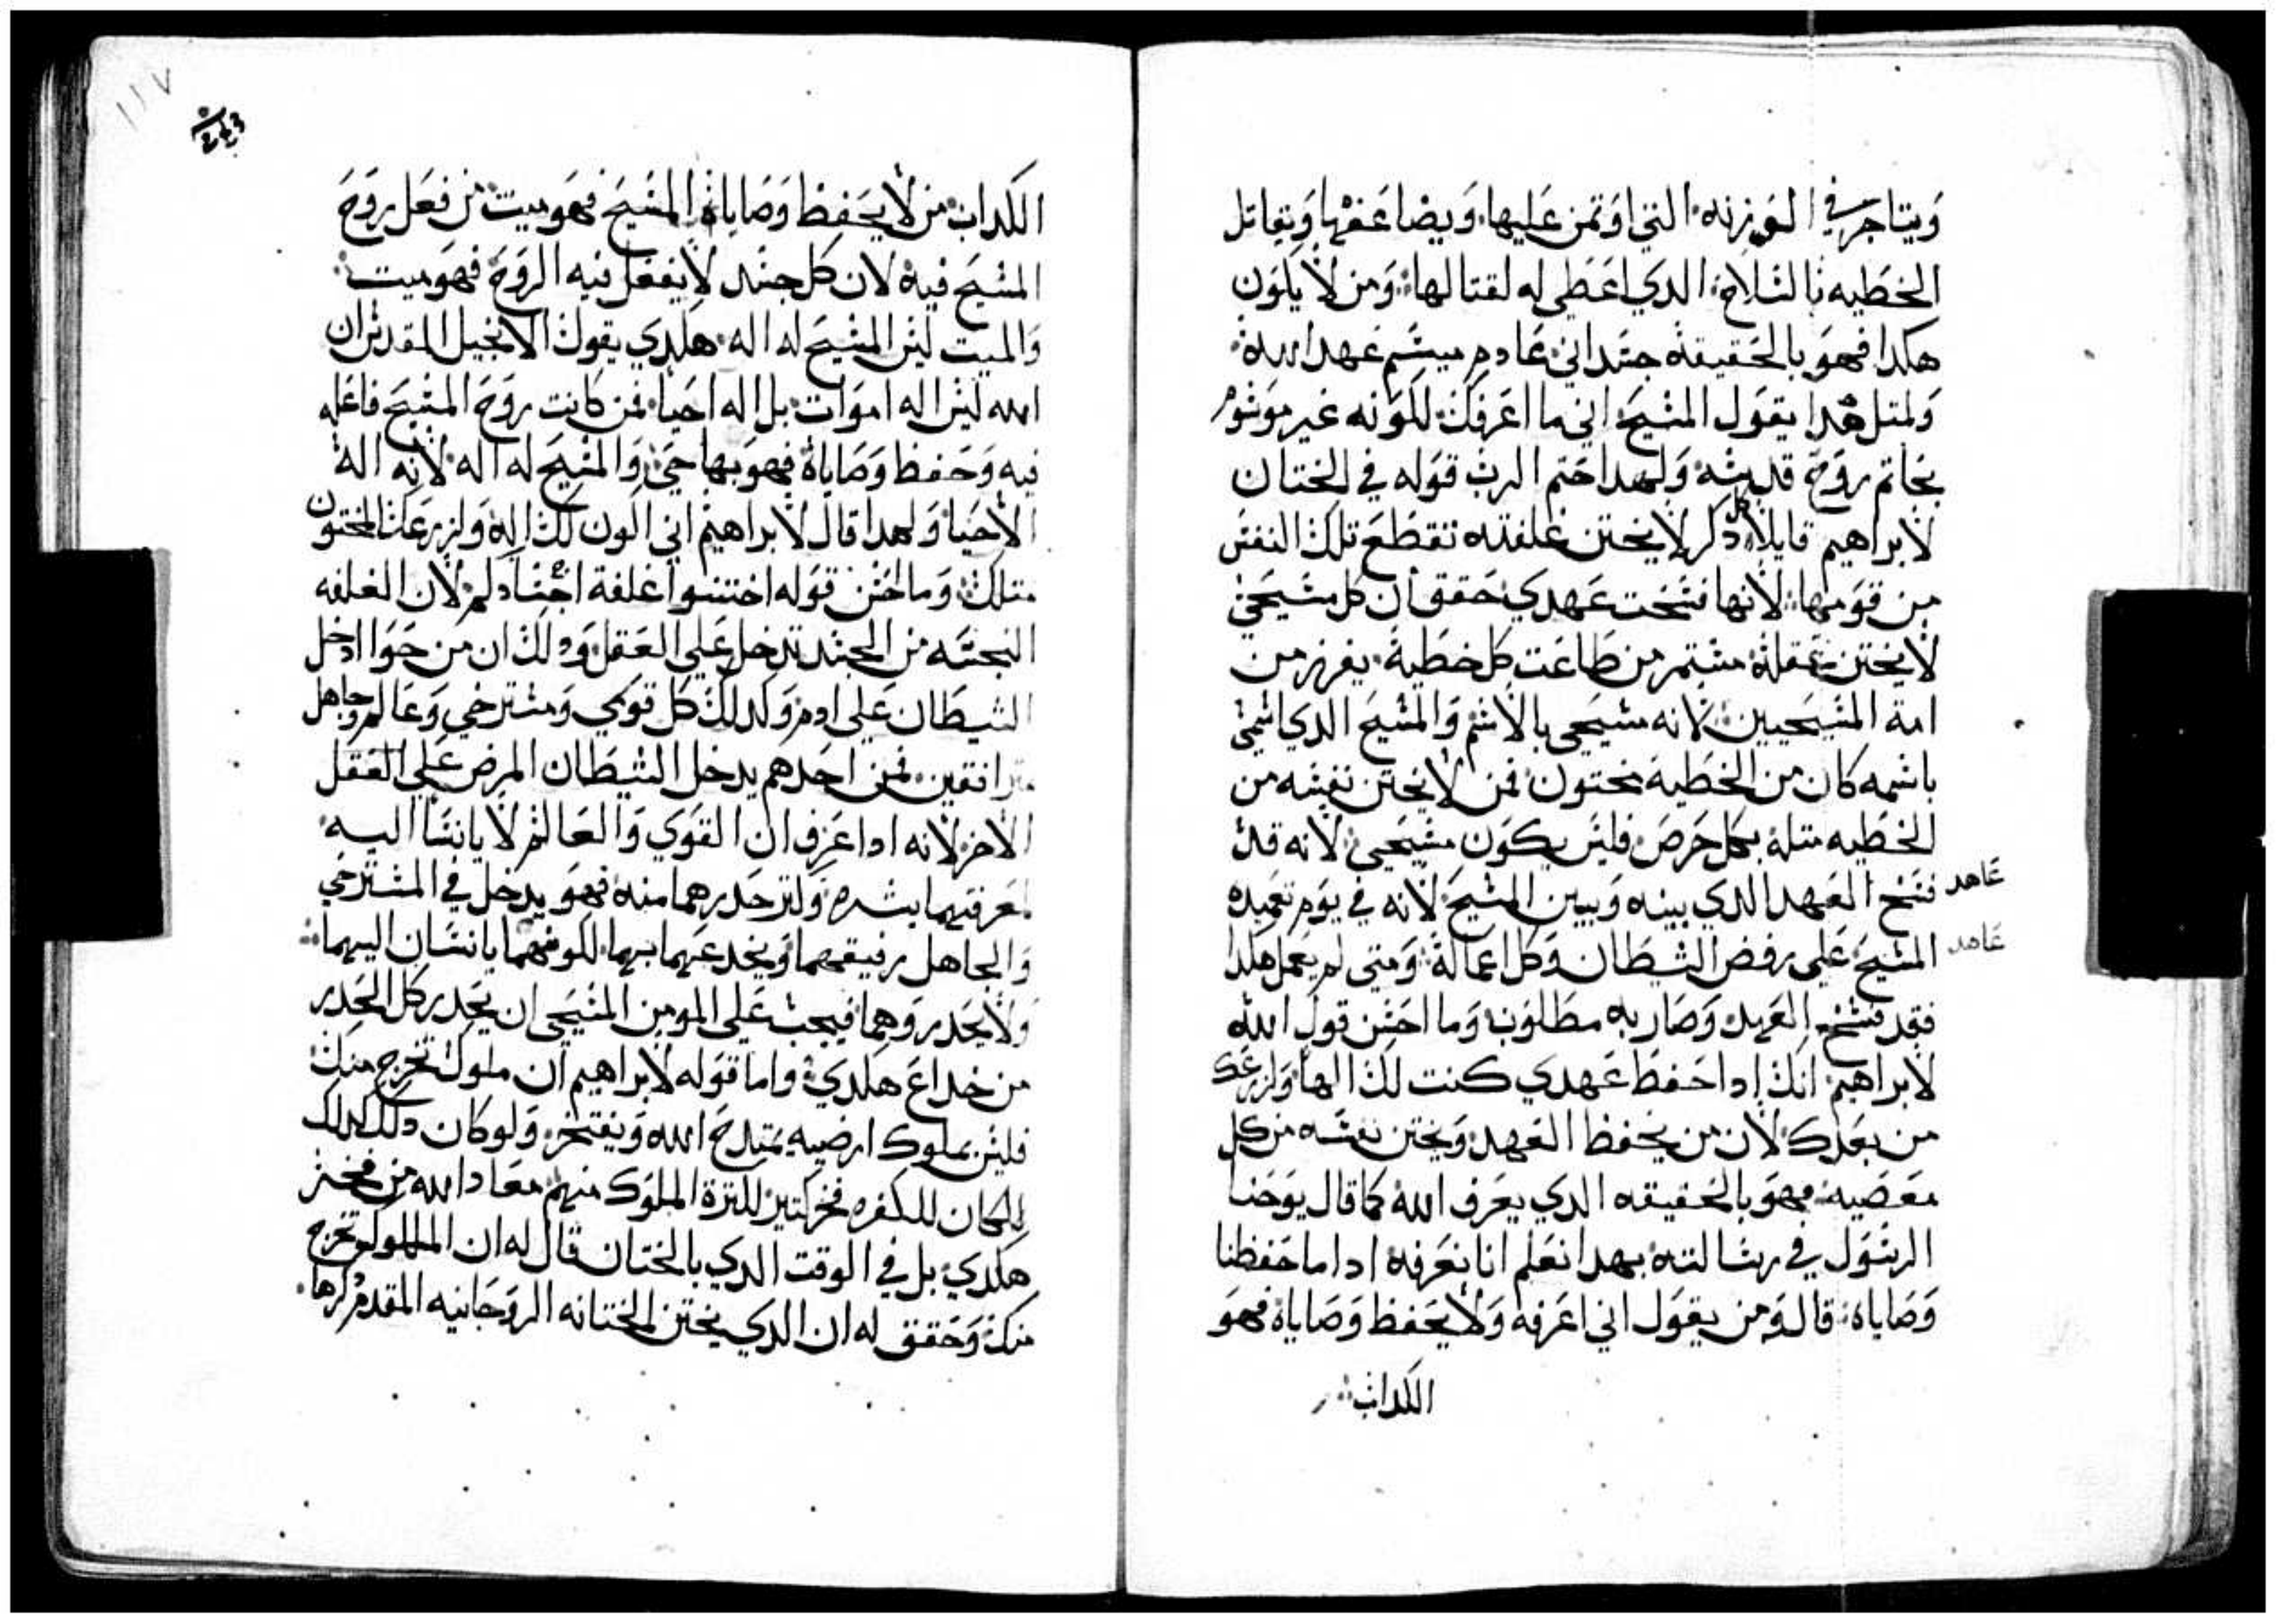 ويتاجر في الوزنه التي اوتمن عليها ويضاعفها ويقاتل
الخطيه بالسلاح الدي اعطي له لقتالها ومن لا يكون
هكدا فهو بالحقيقة جسداني عادم ميسم عهد الله
ولمتل هدا يقول المسيح اني ما اعرفك لكونه غير موسوم
بخاتم روح قدسه ولهدا ختم الرب قوله في الختان
لابراهيم قايلا كل دكر لا يختن غلفته تقطع تلك النفس
من قومها لانها فسخت عهدي حقق ان كل مسيحي
لا يختن عقله مستمر من طاعت كل خطية يفرز من
امة المسيحيين لانه مسيحي بالاسم والمسيح الدي اسمي
باسمه كان من الخطية مختون فمن لا يختن نفسه من
الخطيه متله بكل حرص فليس يكون مسيحي لانه قد
فسخ العهد الدي بينه وبين المسيح لانه في يوم تعميده
عاهد
المسيح علي رفض الشيطان وكل اعماله ومتي لم يعمل هكدا
عاهد
فقد فسخ العهد وصار به مطلوب وما احسن قول الله
لابراهيم انك ادا حفظ عهدي كنت لك الها ولزرعك
من بعدك لان من يحفظ العهد ويختن نفسه من كل
معصيه فهو بالحقيقه الدي يعرف الله كما قال يوحنا
الرسول في رسالته بهدا نعلم انا نعرفه ادا ما حفظنا
وصاياه قال ومن يقول اني اعرفه ولا يحفظ وصاياه فهو
الكداب
الكداب من لا يحفظ وصاياه المسيح فهو ميت من فعل روح
المسيح فيه لان كل جسد لا يفعل فيه الروح فهو ميت
والميت ليس المسيح له اله هكدي يقول الانجيل المقدس ان
الله ليس اله اموات بل اله احيا فمن كانت روح المسيح فاعله
فيه وحفظ وصاياه فهو بها حي والمسيح له اله لانه اله
الاحيا ولهدا قال لابراهيم اني اكون لك اله ولزرعك المختون
متلك وما احسن قوله اختنوا غلفة اجسادكم لان الغلفه
النجسه من الجسد تدخل علي العقل ودلك ان من حوا ادخل
الشيطان علي ادم وكدلك كل قوي ومسترخي وعالم وجاهل
مترافقين فمن احدهم يدخل الشيطان المرض علي العقل
الاخر لانه ادا عرف ان القوي والعالم لا يانسا اليه
لمعرفتهما بشره ولتر حدرهما منه فهو يدخل في المسترخي
والجاهل رفيقهما ويخدعهما بهما لكونهما يانسان اليهما
ولا يحدروهما فيجب علي المومن المسيحي ان يحدر كل الحدر
من خداع هكدي واما قوله لابراهيم ان ملوك تخرج منك
فليس بملوك ارضيه يمتدح الله ويفتخر ولو كان دلك كدلك
لكان للكفره فخر كتير لكترة الملوك منهم معاد الله من فخر
هكدي بل في الوقت الدي بالختان قال له ان الملوك تخرج
منك وحقق له ان الدي يختن الختانه الروحانيه المقدم دكرها
١١٧